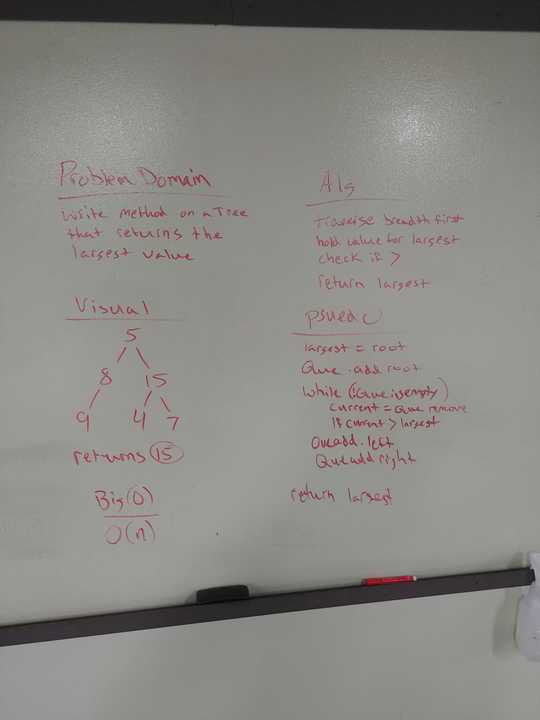 Problem Domain
Write method on a Tree
that returns the
largest value
Visual
5
8 15
9 4 7
returns 15
Big(O)
O(n)
Alg
Traverse breadth first
hold value for largest
check if >
return largest
psued
largest = root
Que.add root
While (!Que isempty)
current = Que remove
If current > largest
Queadd.left
Queadd right
return largest